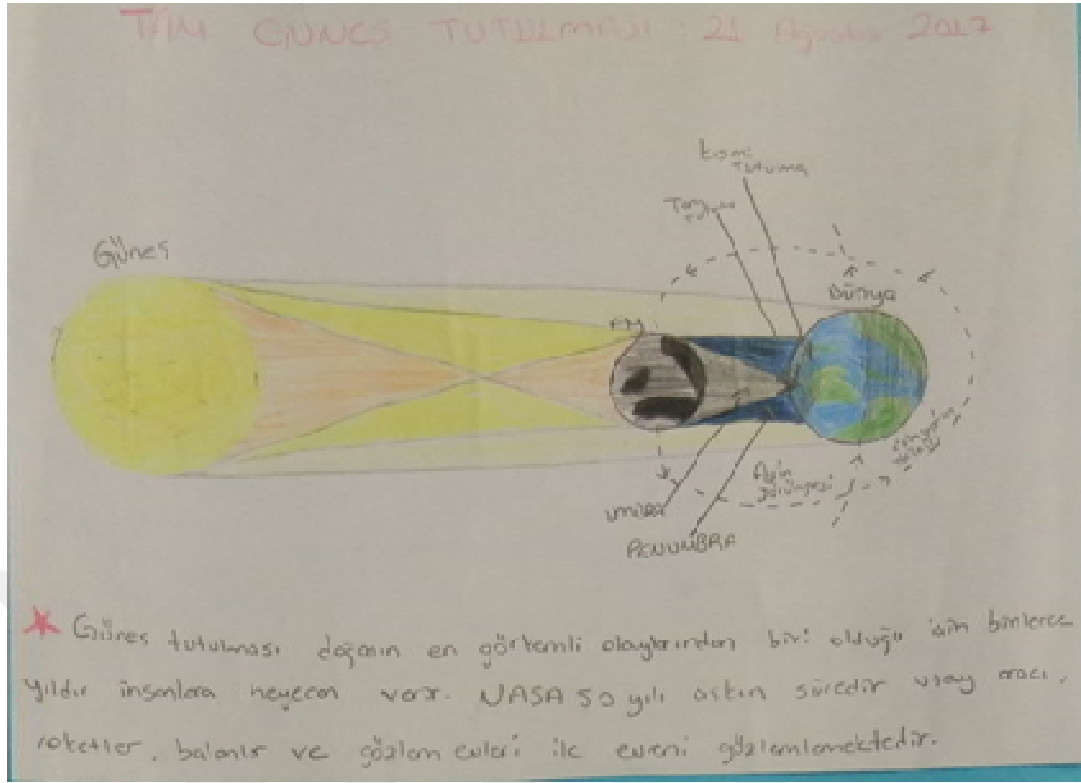 TAM GÜNEŞ TUTULMASI : 21 Ağustos 2017
Kısmi
Tutulma
Tam
Tutulma
Güneş
Dünya
Ayın
yörüngesi
UMBRA
PENUMBRA
Güneş tutulması doğanın en görkemli olaylarından biri olduğu için binlerce
yıldır insanlara heyecan verir. NASA 50 yılı aşkın süredir uzay aracı,
roketler, balonlar ve gözlem evleri ile evreni gözlemlemektedir.